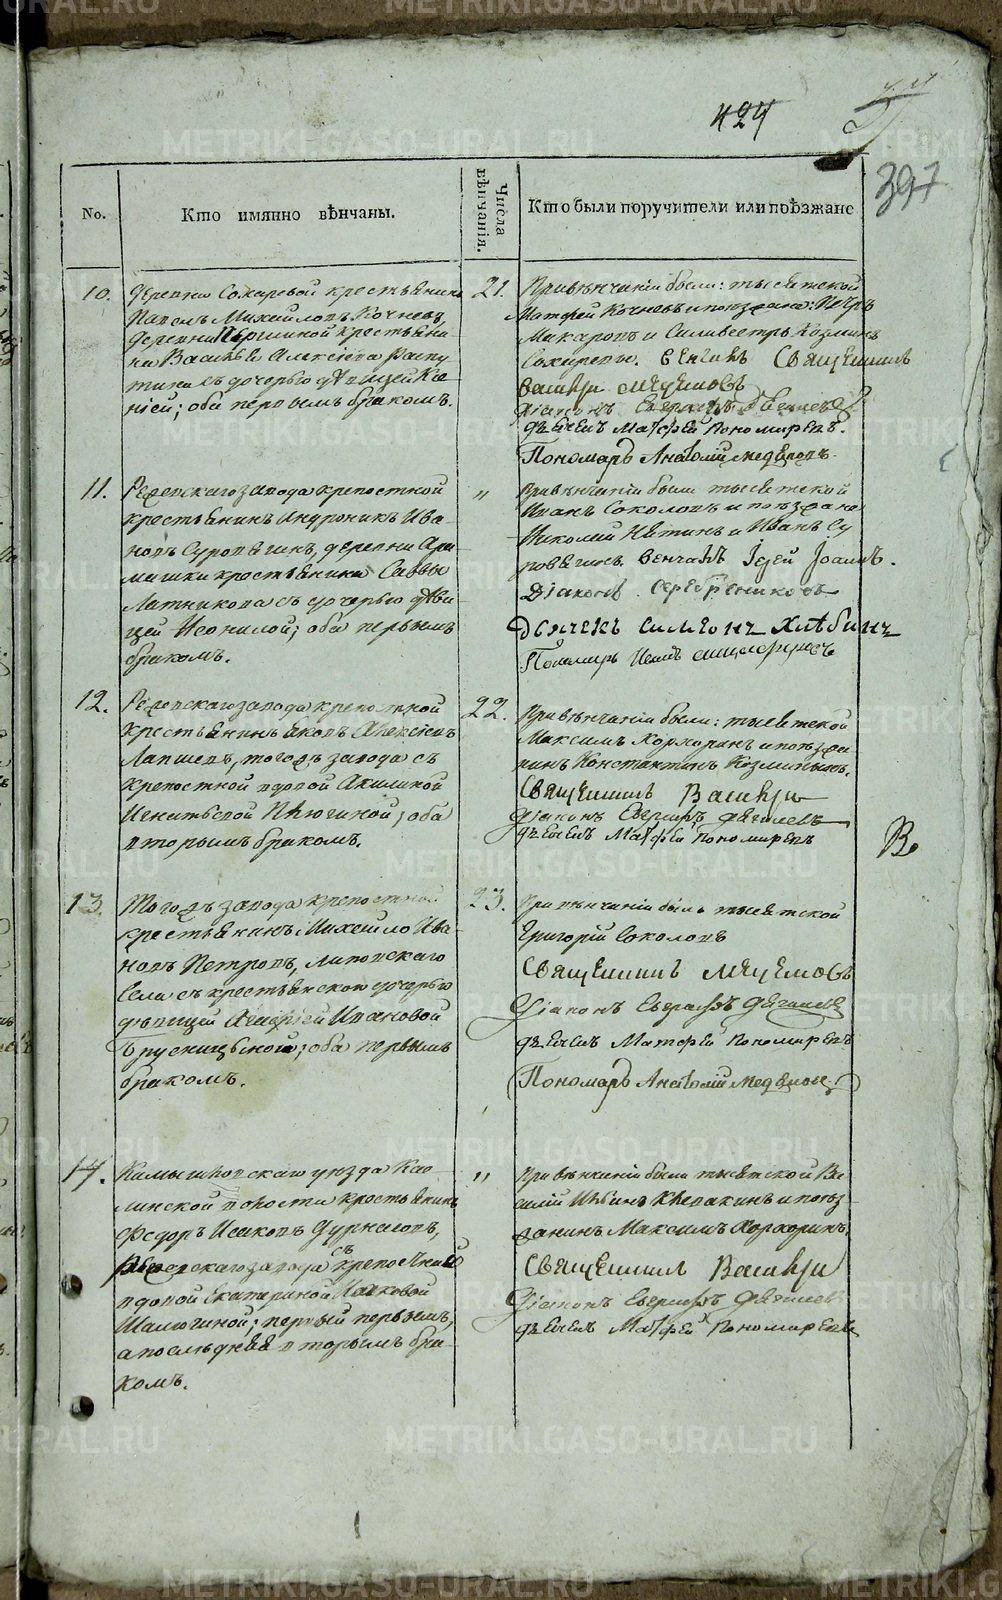 424
397
No.
Кто имянно вѣнчаны.
Числа вѣнчанія.
Кто были поручители или поѣзжане
10.
деревни Сохаревой крестьянинъ
Павелъ Михайловъ Кочневъ,
деревни Першиной крестьяни
на Василья Алексіева Распу
тина съ дочерью дѣвицей Ксе
ніей; оба первымъ бракомъ.
21.
При вѣнчаніи были: тысятской
Матфей Кочневъ и поѣзжана: Петръ
Макаровъ и Сильвестръ Козминъ
Сохаревы. венчалъ Священникъ
Василій
Діаконъ
дьячекъ Матфей Пономаревъ.
Пономарь Анатолій Медведевъ.
11.
Режевскаго завода крепостной
крестьянинъ Андроникъ Ива
новъ Суровегинъ, деревни Ара
машки крестьянина Саввы
Латникова съ дочерью дѣви
цей Неонилой; оба первымъ
бракомъ.
"
При вѣнчаніи были тысятской
Иванъ Соколовъ и поѣзжана
Николай Никитинъ и Иванъ Су
ровегинъ. Венчалъ Іерей Іоаннъ.
Діаконъ Серебрениковъ
Дьячекъ Симеонъ Хлѣбинъ
Пономарь
12.
Режевскаго завода крепостной
крестьянинъ Яковъ Алексіевъ
Лапшевъ, тогожъ завода съ
крепостной вдовой Акилиной
Игнатьевой Пѣюгиной; оба
вторымъ бракомъ.
22.
При вѣнчаніи были: тысятской
Максимъ Коркоринъ и поѣзжа
нинъ Константинъ Козминыхъ.
Священникъ Василій
Діаконъ
дьячекъ Матфей Пономаревъ
В.
13.
Тогожъ завода крепостной
крестьянинъ Михайло Ива
новъ Петровъ, Липовскаго
Села съ крестьянскою дочерью
дѣвицей Ивановой
Брусницыной; оба первымъ
бракомъ.
23.
При вѣнчаніи былъ тысятской
Григорій Соколовъ
Священникъ
Діаконъ
дьячекъ Матфей Пономаревъ
Пономарь Анатолій Медведевъ
14.
Камышловскаго уѣзда Као
линской волости крестьянинъ
Федоръ Исаковъ Дурнаковъ,
Режевскаго завода съ крепостной
вдовой Екатериной
Шалюгиной; первый первымъ,
а последняя вторымъ бра
комъ.
"
При вѣнчаніи были тысятской Ва
силій Ильинъ Клевакинъ и поѣз
жанинъ Максимъ Коркоринъ.
Священникъ Василій
Діаконъ
дьячекъ Матфей Пономаревъ
METRIKI.GASO-URAL.RU